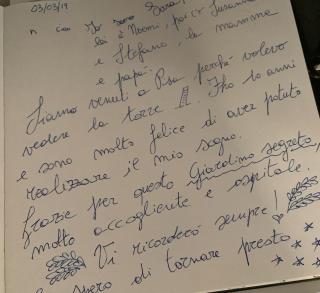 03/03/19
n ciao Io sono Sara,
lei è Noemi, poi c'è Susanna
e Stefano, la mamma
e papà.
Siamo venuti a Pisa perché volevo
vedere la torre. Ho 10 anni
e sono molto felice di aver potuto
realizzare il mio sogno.
Grazie per questo Giardino segreto,
molto accogliente e ospitale.
Vi ricorderò sempre!
spero di tornare presto